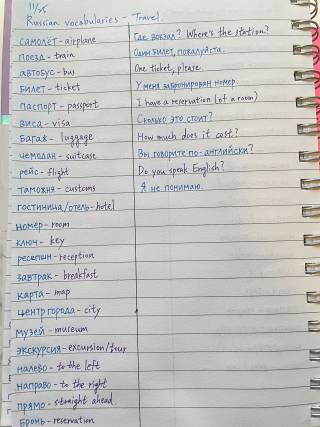 11/25
Russian vocabularies - Travel.
самолёт - airplane
поезда - train
автобус - bus
билет - ticket
паспорт - passport
виса - visa
багаж - luggage
чемодан - suitcase
рейс - flight
таможня - customs
гостиница/отель - hotel
номер - room
ключ - key
ресепшн - reception
завтрак - breakfast
карта - map
центр города - city
музей - museum
экскурсия - excursion/tour
налево - to the left
направо - to the right
прямо - straight ahead.
бронь - reservation
Где вокзал? Where's the station?
Один билет, пожалуйста.
One ticket, please.
У меня забронирован номер.
I have a reservation (of a room)
Сколько это стоит?
How much does it cost?
Вы говорите по-английски?
Do you speak English?
Я не понимаю.